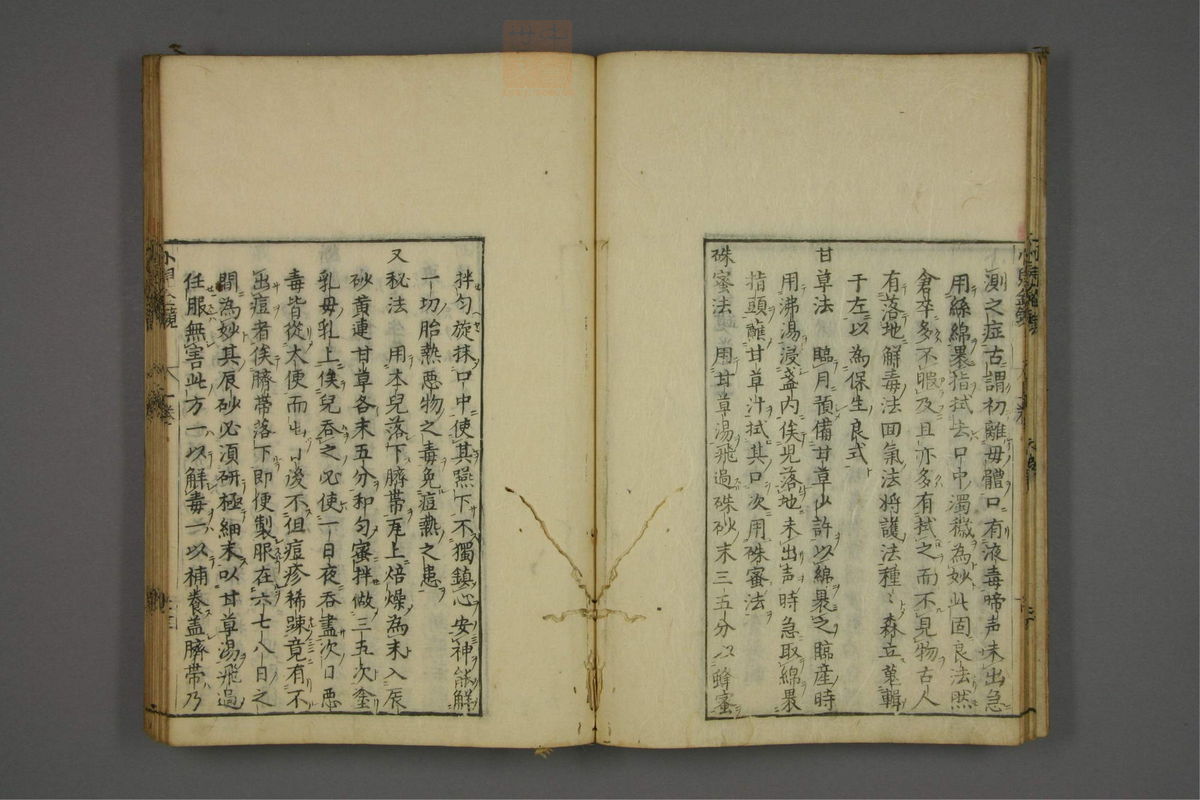 測之症古謂初離母體口有液毒啼声未出急
用絲綿裹指拭去口中濁穢為妙此固良法然
倉卒多不暇及且亦多有拭之而不見物古人
有落地解毒法回氣法将護法種〻森立蒐輯
于左以為保生良式
甘草法　臨月預備甘草少許以綿裹之臨産時
用沸湯浸盞内俟児落地未出声時急取綿裹
指頭蘸甘草汁拭其口次用硃蜜法
硃蜜法　用甘草湯飛過硃砂末三五分以蜂蜜
拌匀旋抹口中使其嚥下不獨鎮心安神能解
一切胎熱悪物之毒免痘熱之患
又秘法　用本兒落下臍帶瓦上焙燥為末入辰
砂黄連甘草各末五分和匀蜜拌做三五次塗
乳母乳上俟兒吞之必使一日夜吞盡次日悪
毒皆從大便而出日後不但痘疹稀踈竟有不
出痘者俟臍帶落下即便製服在六七八日之
間為妙其辰砂必須研極細末以甘草湯飛過
任服無害此方一以解毒一以補養盖臍帶乃